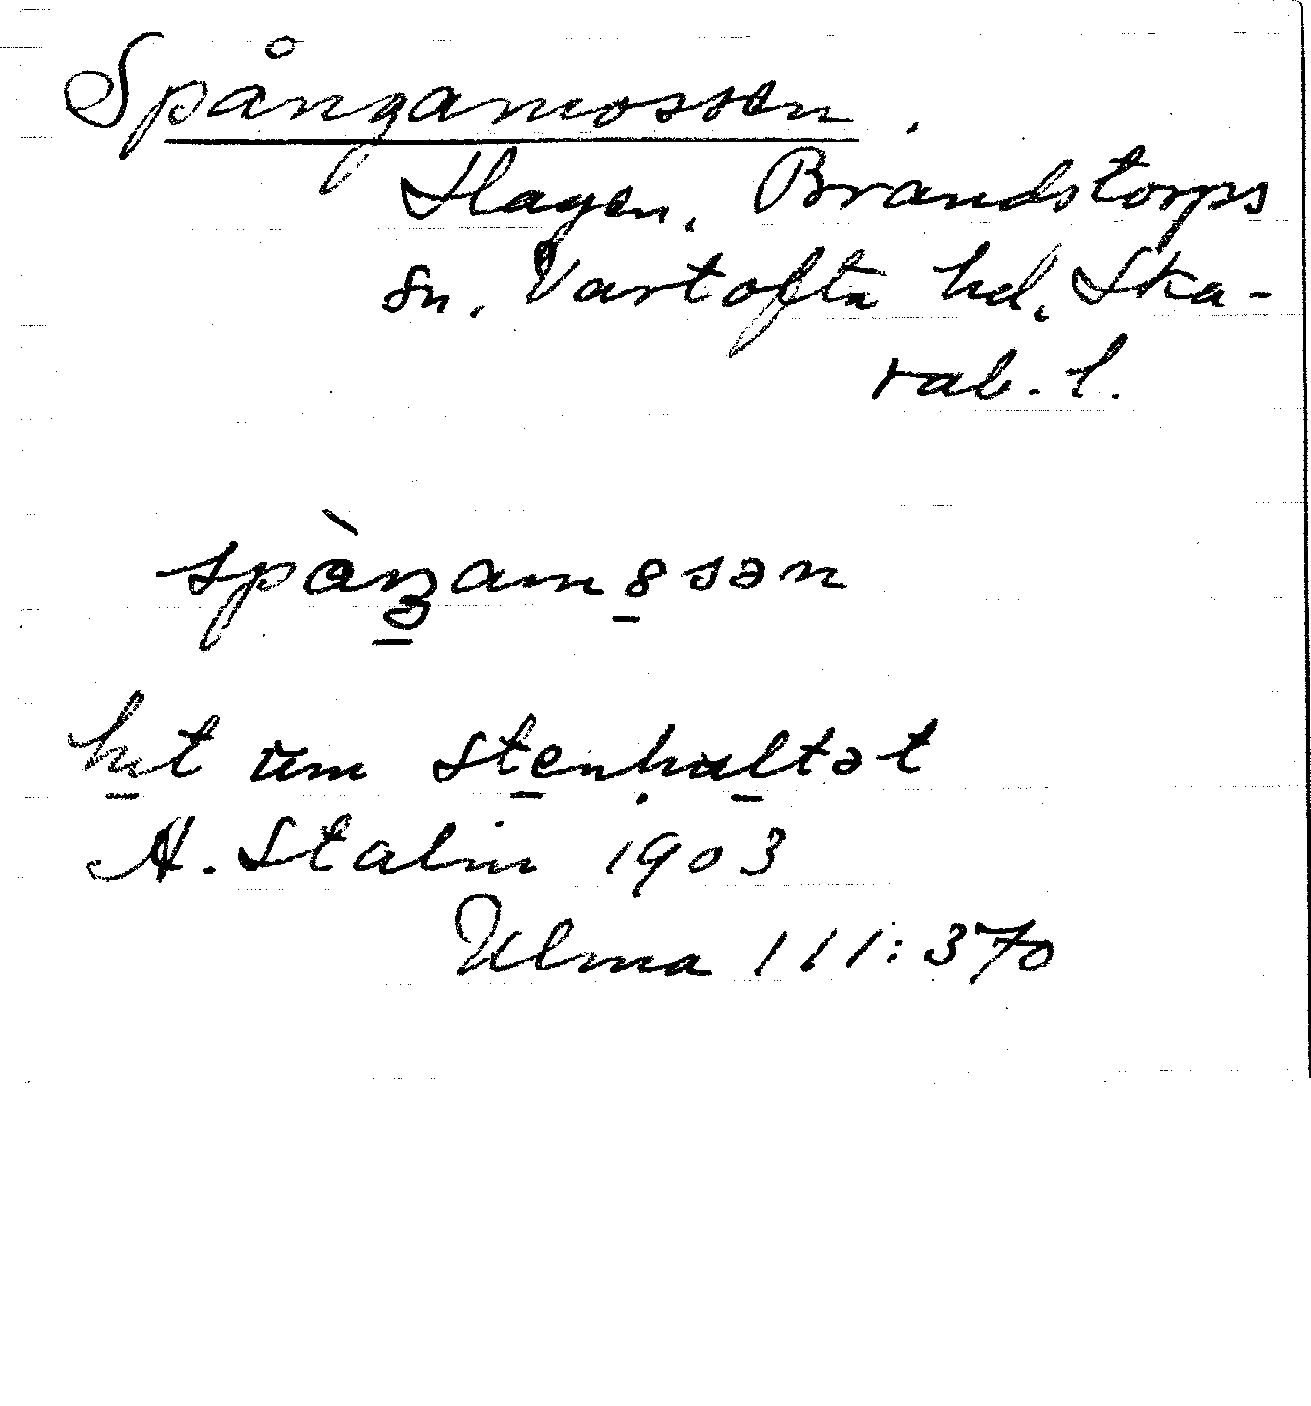 Spångamossen.
Hagen, Brandstorps
sn. Vartofta hd. Ska-
rab. l.
hit um stenhultət
A. Stalin 1903
Ulma 111:370